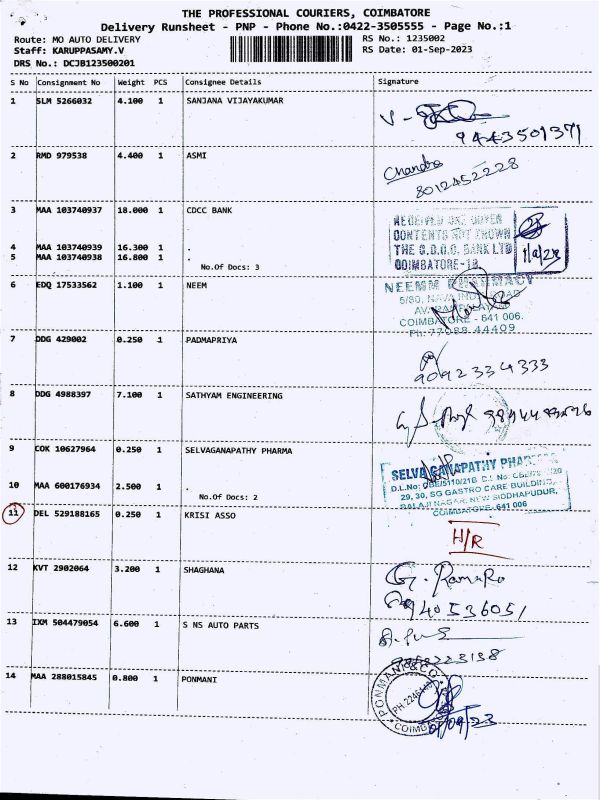 THE PROFESSIONAL COURIERS, COIMBATORE
Delivery Runsheet - PNP - Phone No.:0422-3505555 - Page No.:1
Route: MO AUTO DELIVERY
RS No.: 1235002
Staff: KARUPPASAMY.V
RS Date: 01-Sep-2023
DRS No.: DCJB123500201
S No Consignment No Weight PCS Consignee Details Signature
1 SLM 5266032 4.100 1 SANJANA VIJAYAKUMAR
9443501371
2 RMD 979538 4.400 1 ASMI
Chandra
8012452228
3 MAA 103740937 18.000 1 CDCC BANK
RECEIVED
CONTENTS NOT KNOWN
THE C.D.C.C. BANK LTD
COIMBATORE-18
1/9/23
4 MAA 103740939 16.300 1 .
5 MAA 103740938 16.800 1 .
No.Of Docs: 3
6 EDQ 17533562 1.100 1 NEEM
NEEMM PHARMACY
COIMBATORE - 641 006.
Ph: 77088 44409
7 DDG 429002 0.250 1 PADMAPRIYA
9092334333
8 DDG 4988397 7.100 1 SATHYAM ENGINEERING
9 COK 10627964 0.250 1 SELVAGANAPATHY PHARMA
SELVAGANAPATHY PHARMA
29, 30, SG GASTRO CARE BUILDING,
BALAJI NAGAR, NEW SIDDHAPUDUR,
COIMBATORE 641 006
10 MAA 600176934 2.500 1 .
No.Of Docs: 2
11 DEL 529188165 0.250 1 KRISI ASSO
H/R
12 KVT 2902064 3.200 1 SHAGHANA
G. Ramaro
940536051
13 IXM 504479054 6.600 1 S NS AUTO PARTS
14 MAA 288015845 0.800 1 PONMANI
PONMANI & CO
COIMB
01/09/23